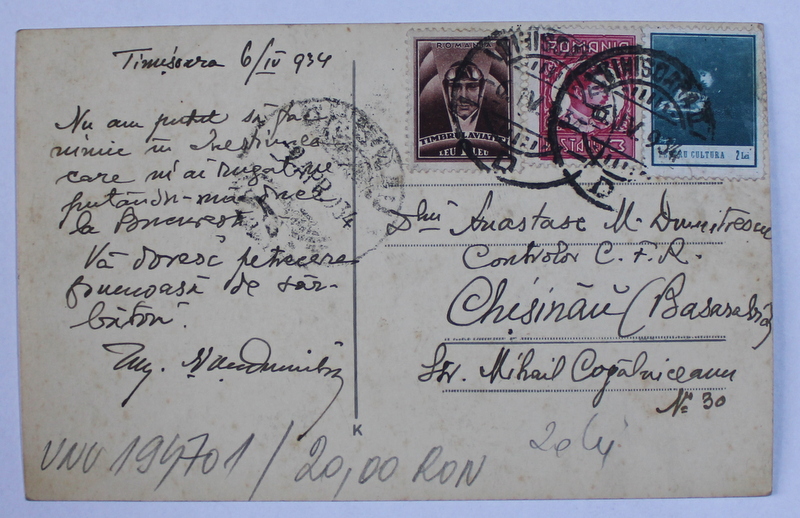 Timișoara 6/IV 934
Nu am putut să fac
nimic în chestiunea
care m'ai rugat
la București
Vă doresc petrecere
frumoasă de săr-
bători.
Ing.
ROMANIA
TIMBRUL AVIAȚIEI
LEU 1 LEU
ROMÂNIA
POSTA LEI 3
TIMISOARA
6. IV. 934
CULTURA 2 Lei
Dlui Anastase M. Dumitrescu
Controlor C. F. R.
Chișinău (Basarabia)
Str. Mihail Cogălniceanu
No 30
K
2 lei
VNV 194701 / 20,00 RON